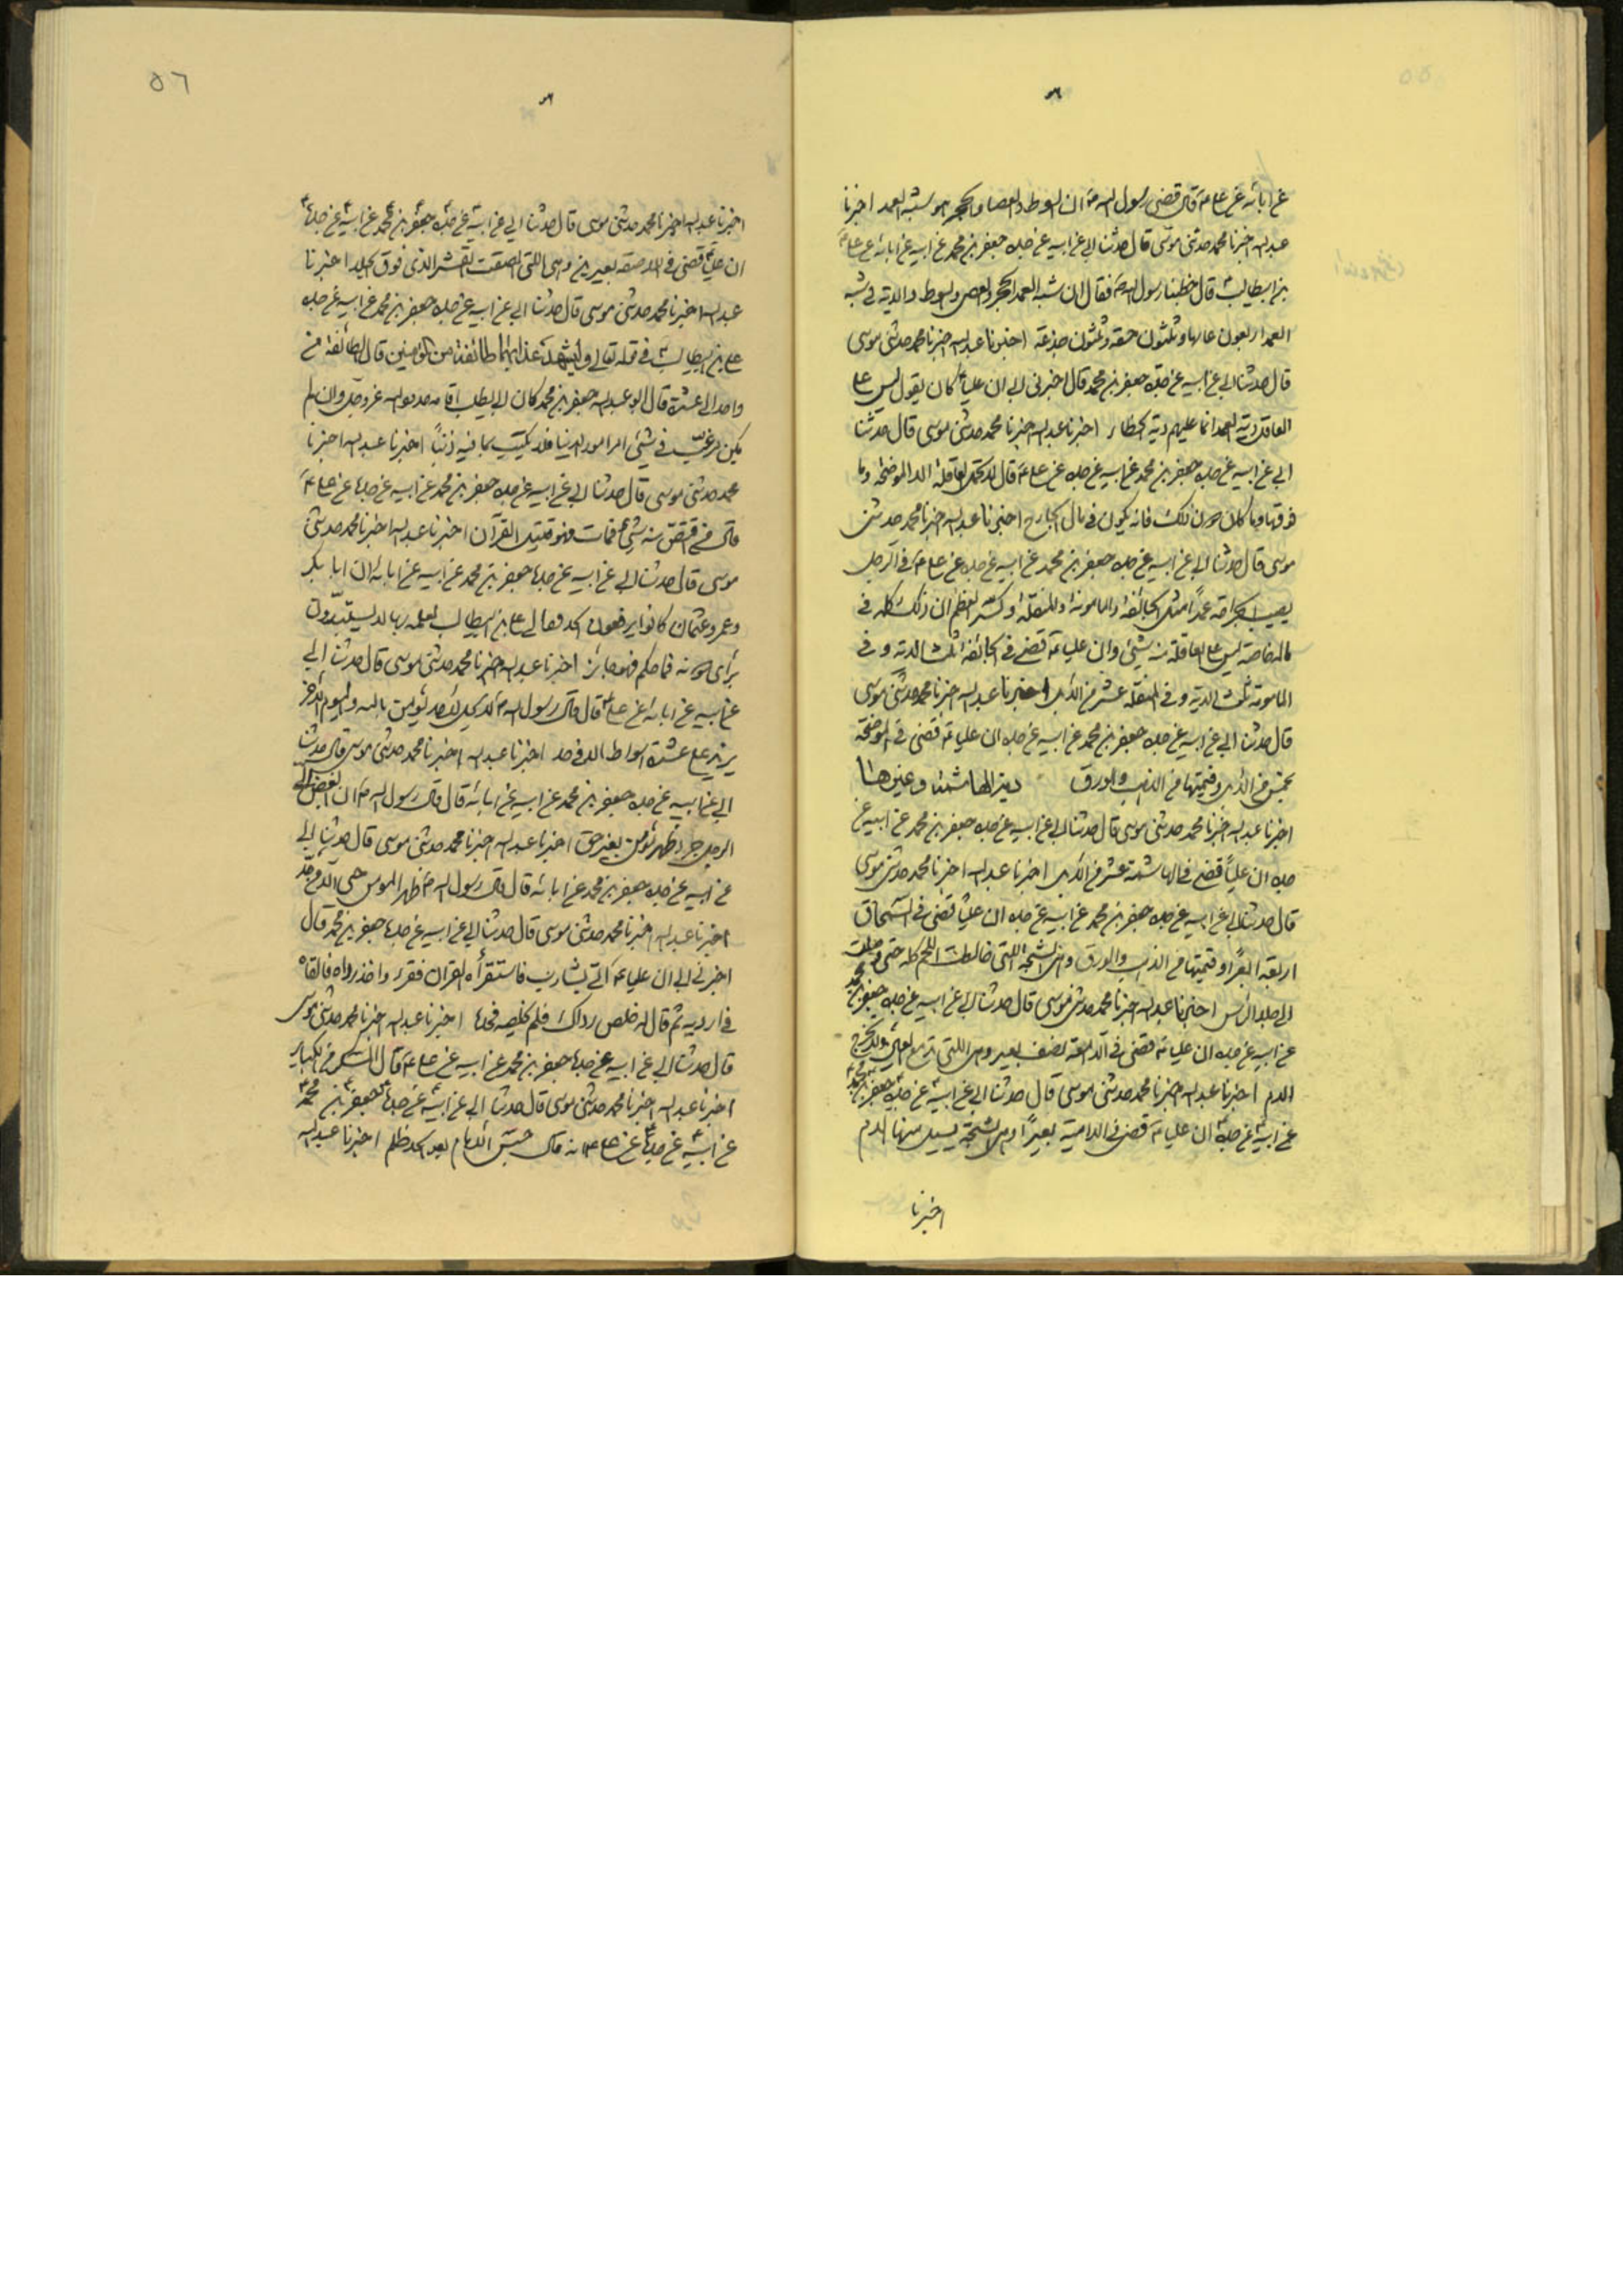 عن ابائه عن علي ع قال قضى رسول الله ص ان السوط والعصا والحجر هو شبه العمد اخبرنا
عبد الله اخبرنا محمد حدثني موسى قال حدثنا ابي عن ابيه عن جده جعفر بن محمد عن ابيه عن ابائه عن علي
بن ابيطالب قال خطبنا رسول الله ص فقال ان شبه العمد الحجر والعصى والسوط والدية في شبه
العمد اربعون وثلثون حقه وثلثون جذعة اخبرنا عبد الله اخبرنا محمد حدثني موسى
قال حدثنا ابي عن ابيه عن جده جعفر بن محمد قال اخبرني ابي ان علياً كان يقول ليس على
العاقلة دية العمد انما عليهم دية الخطاء اخبرنا عبد الله اخبرنا محمد حدثني موسى قال حدثنا
ابي عن ابيه عن جده جعفر بن محمد عن ابيه عن جده عن علي ع قال لا تحمل العاقلة الا الموضحة وما
فوقها وما كان دون ذلك فانه يكون في مال الجارح اخبرنا عبد الله اخبرنا محمد حدثني
موسى قال حدثنا ابي عن ابيه عن جده جعفر بن محمد عن ابيه عن جده عن علي ع في الرجل
يصيب بجراحة عمداً مثل الجائفة والمامومة والمنقلة وكسر العظم ان ذلك كله في
ماله خاصة ليس على العاقلة منه شيئ وان عليا ع قضى في الجائفة ثلث الدية وفي
المامومة ثلث الدية وفي المنقلة عشر من الابل اخبرنا عبد الله اخبرنا محمد حدثني موسى
قال حدثنا ابي عن ابيه عن جده جعفر بن محمد عن ابيه عن جده ان عليا ع قضى في الموضحة
بخمس من الابل وقيمتها من الذهب والورق دية الهاشمة وغيرها
اخبرنا عبد الله اخبرنا محمد حدثني موسى قال حدثنا ابي عن ابيه عن جده جعفر بن محمد عن ابيه عن
جده ان علياً قضى في الهاشمة عشر من الابل اخبرنا عبد الله اخبرنا محمد حدثني موسى
قال حدثنا ابي عن ابيه عن جده جعفر بن محمد عن ابيه عن جده ان علياً قضى في السمحاق
اربعة ابعرًا وقيمتها من الذهب والورق وهي الشجة اللتي خالطت اللحم كله حتى وصلت
الى جلد الراس اخبرنا عبد الله اخبرنا محمد حدثني موسى قال حدثنا ابي عن ابيه عن جده جعفر بن محمد
عن ابيه عن جده ان عليا ع قضى في الدامعة نصف بعير وهي اللتي ولا يخرج
الدم اخبرنا عبد الله اخبرنا محمد حدثني موسى قال حدثنا ابي عن ابيه عن جده جعفر بن محمد
عن ابيه عن جده ان عليا ع قضى في الدامية بعيرًا وهي الشجة يسيل منها الدم
اخبرنا
٥٦
اخبرنا عبد الله اخبرنا محمد حدثني موسى قال حدثنا ابي عن ابيه عن جده جعفر بن محمد عن ابيه عن جده
ان علياً قضى في اللاصقة بعيرين وهي اللتي لصقت بقشر الذي فوق الجلد اخبرنا
عبد الله اخبرنا محمد حدثني موسى قال حدثنا ابي عن ابيه عن جده جعفر بن محمد عن ابيه عن جده
علي بن ابيطالب في قوله تعالى وليشهد عذابهما طائفة من المؤمنين قال الطائفة من
واحد الى عشرة قال ابو عبد الله جعفر بن محمد كان
يكن في شيئ امر امور الدنيا اخبرنا عبد الله اخبرنا
محمد حدثني موسى قال حدثنا ابي عن ابيه عن جده جعفر بن محمد عن ابيه عن جده عن علي ع
قال من اقتص منه شيئ فمات فهو قتيل القرآن اخبرنا عبد الله اخبرنا محمد حدثني
موسى قال حدثنا ابي عن ابيه عن جده جعفر بن محمد عن ابيه عن ابائه ان ابا بكر
وعمر وعثمان كانوا يرفعون الحد الى علي بن ابيطالب لعلمه بها لا يستبدون
براى دونه فما حكم فهو جائز اخبرنا عبد الله اخبرنا محمد حدثني موسى قال حدثنا ابي
عن ابيه عن ابائه عن علي ع قال قال رسول الله ص لا يحل لاحد يؤمن بالله واليوم الاخر
يزيد على عشرة اسواط الا في حد اخبرنا عبد الله اخبرنا محمد حدثني موسى قال حدثنا
ابي عن ابيه عن جده جعفر بن محمد عن ابيه عن ابائه قال قال رسول الله ص ان ابغض الى
الرجل جرد ظهر مؤمن بغير حق اخبرنا عبد الله اخبرنا محمد حدثني موسى قال حدثنا ابي
عن ابيه عن جده جعفر بن محمد عن ابائه قال قال رسول الله ص ظهر المومن حمى الا من حد
اخبرنا عبد الله اخبرنا محمد حدثني موسى قال حدثنا ابي عن ابيه عن جده جعفر بن محمد قال
اخبرني ابي ان عليا ع اتى بشارب فاستقرأه القران فقرء واخذ رداه فالقاه
في اردية ثم قال له خلص رداك فلم يخلصه فحده اخبرنا عبد الله اخبرنا محمد حدثني موسى
قال حدثنا ابي عن ابيه عن جده جعفر بن محمد عن ابيه عن علي ع قال السكر من الكبائر
اخبرنا عبد الله اخبرنا محمد حدثني موسى قال حدثنا ابي عن ابيه عن جده جعفر بن محمد
عن ابيه عن جده عن علي ع انه قال حبس الامام بعد الحد ظلم اخبرنا عبد الله